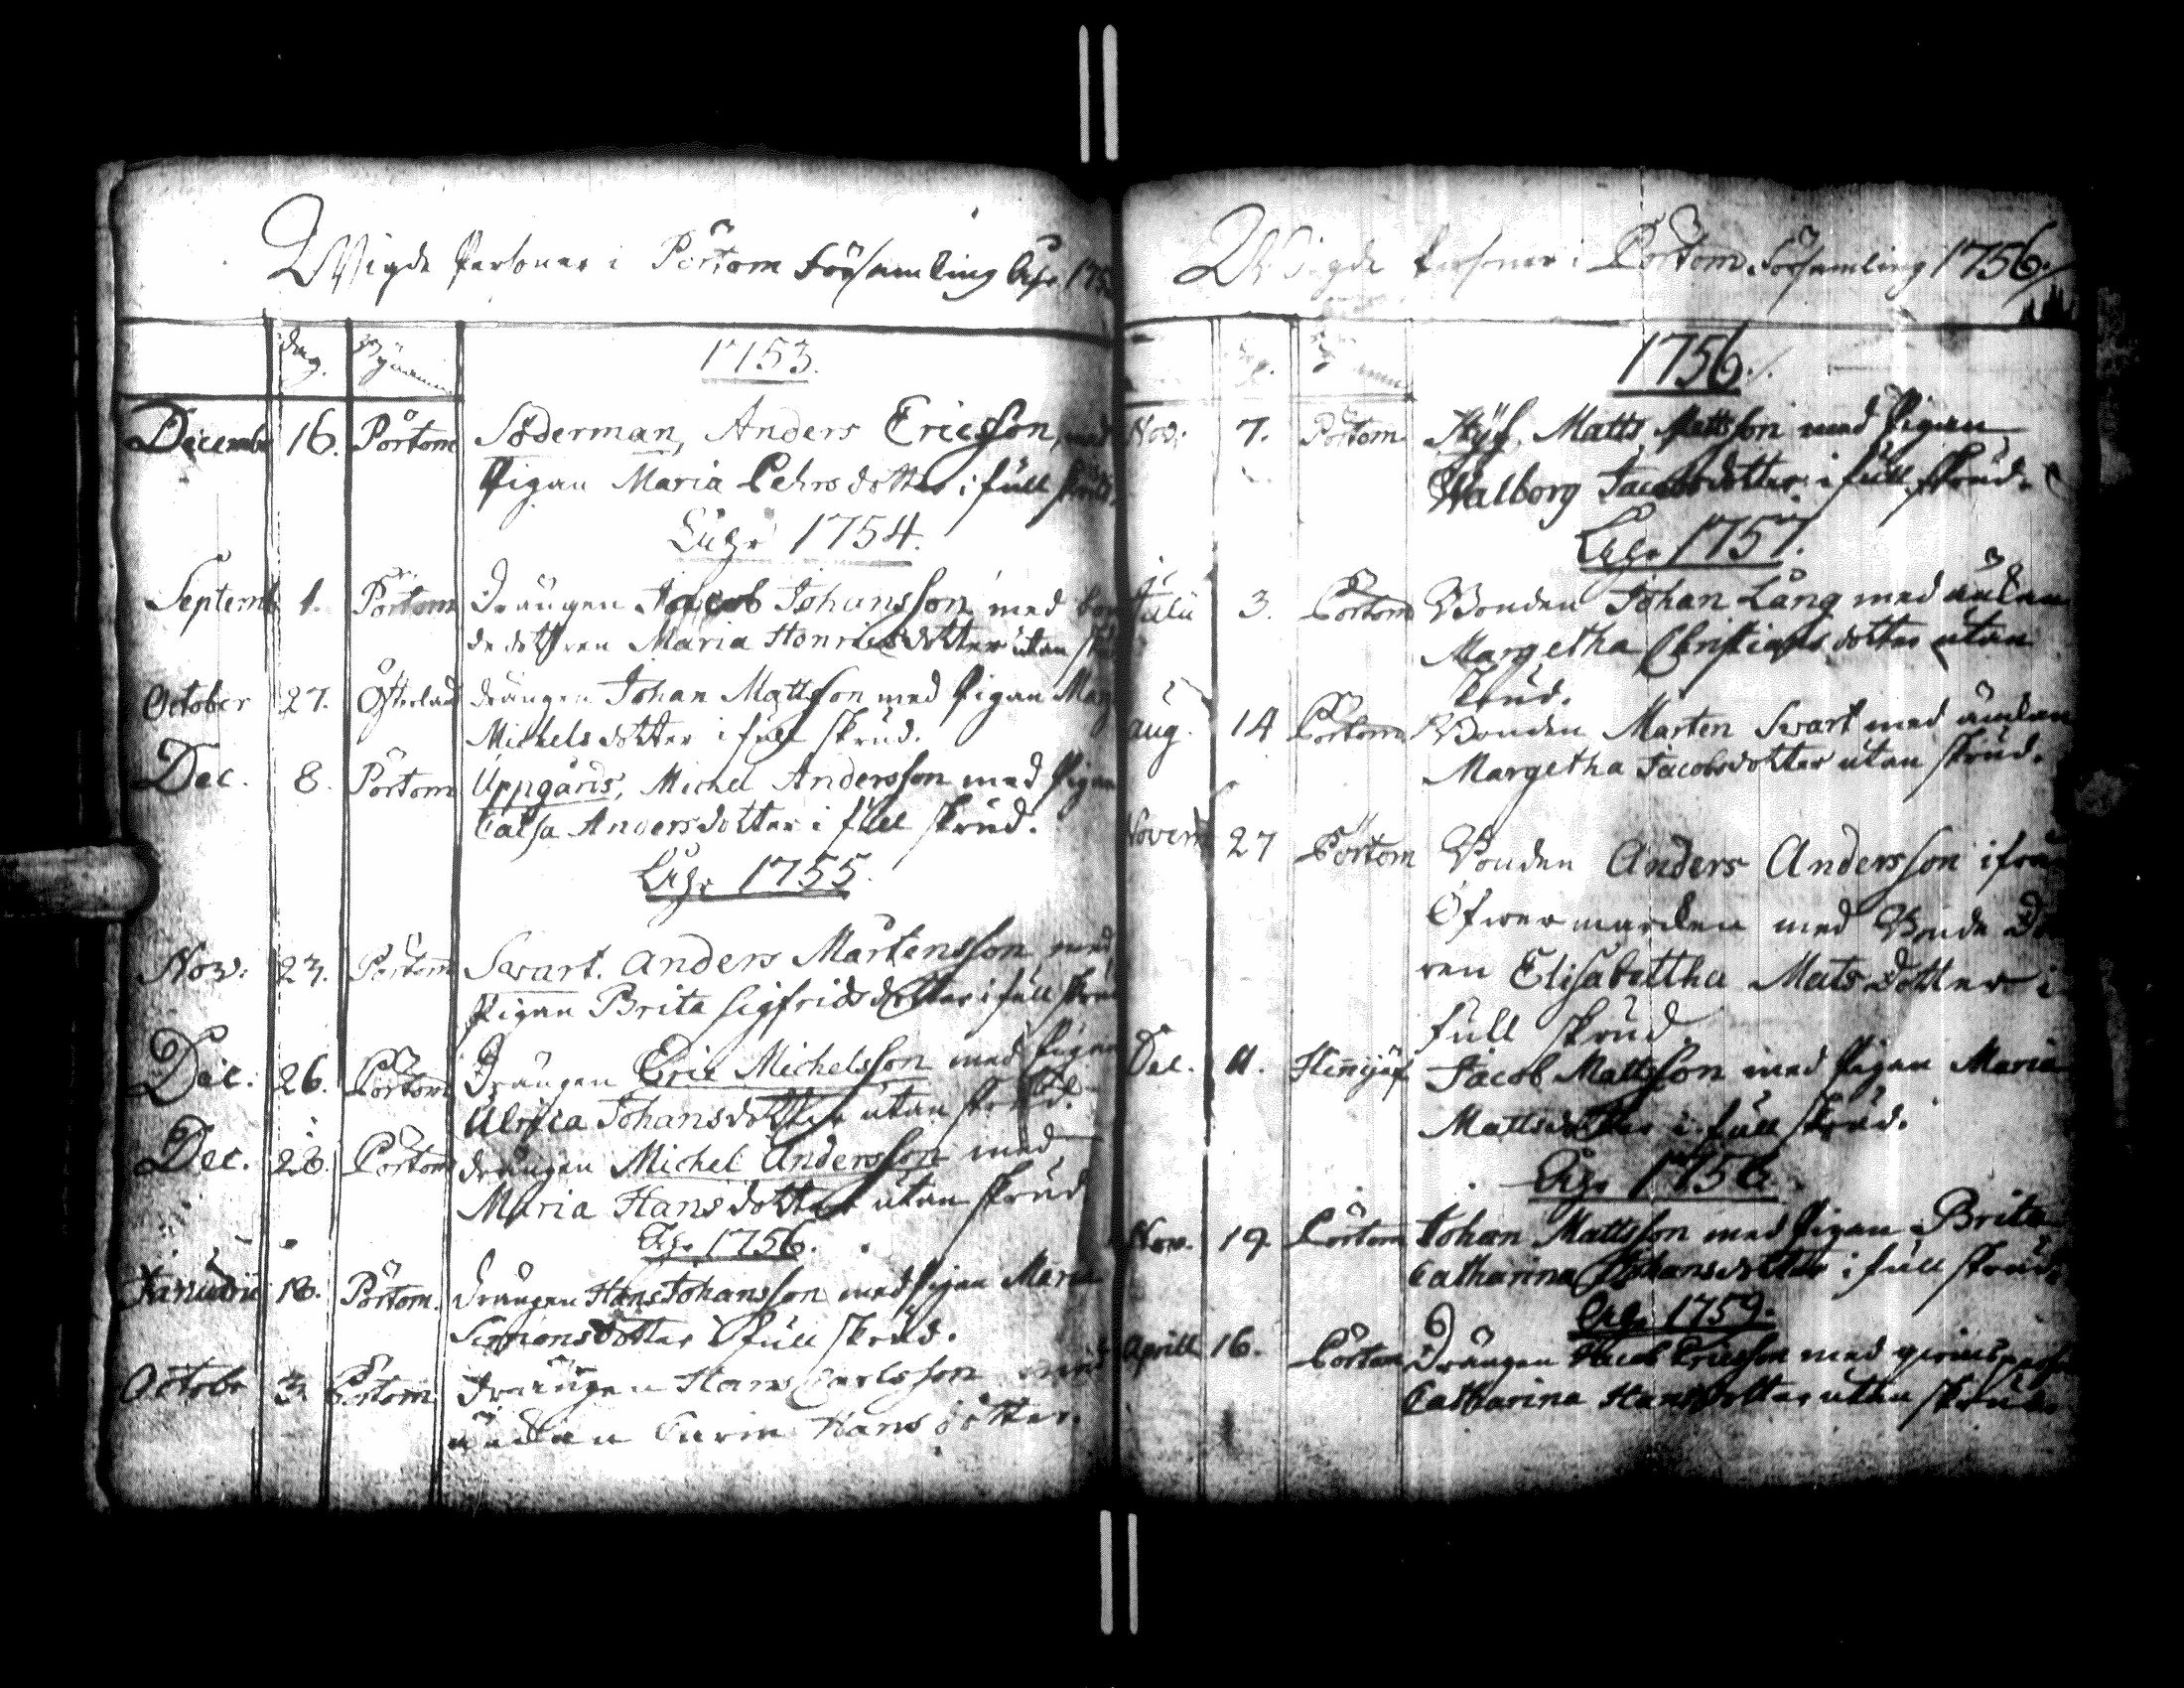 Wigde Personer i Pörtom Församling Åhr 175
dag. Bÿnamn
1753.
Decemb 16. Pörtom Söderman, Anders Ericsson, med
Pigan Maria Pehrsdotter i full skrud.
Åhr 1754.
Septemb 1. Pörtom Drängen Jacob Johansson med bon
dedottren Maria Henricsdotter utan skrud
October 27. Österland drängen Johan Mattsson med Pigan Marg
Michelsdotter i full skrud.
Dec. 8. Pörtom Uppgårds, Michel Andersson med Pigan
Caisa Andersdotter i full skrud.
Åhr 1755.
Nov: 23. Pörtom Swart. Anders Mårtensson med
Pigan Brita Sigfridsdotter i full skrud
Dec: 26. Pörtom Drängen Eric Michelsson med Pigan
Ulrica Johansdotter utan skrud.
Dec. 28. Pörtom drängen Michel Andersson med
Maria Hansdotter utan skrud
Åhr 1756.
Januarii 18. Pörtom. drängen Hans Johansson med Pigan Maria
Simonsdotter i full skrud.
Octobr 3. Pörtom Drängen Hans Carlsson med
änckan Carin Hansdotter.
Wigde Personer i Pörtom Församling 1756.
1756.
Nov: 7. Pörtom Matts Mattsson med Pigan
Walborg Jacobsdotter i full skrud.
Åhr 1757.
Julii 3. Pörtom Bonden Johan Lång med änkan
Margetha Christiansdotter utan
skrud.
aug. 14 Pörtom Bonden Marten Swart med änkan
Margetha Jacobsdotter utan skrud.
Novemb 27 Pörtom Bonden Anders Andersson ifrån
Öfwermarken med Bonde Do
ren Elisabettha Matsdotter i
full skrud.
Dec. 11. Jacob Mattsson med Pigan Maria
Mattsdotter i full skrud.
Åhr 1758.
Nov. 19. Pörtom Johan Mattsson med Pigan Brita
Catharina Johansdotter i full skrud.
Åhr 1759.
Aprill 16. Pörtom Drängen Jacob Ericsson med
Catharina Hansdotter utan skrud.